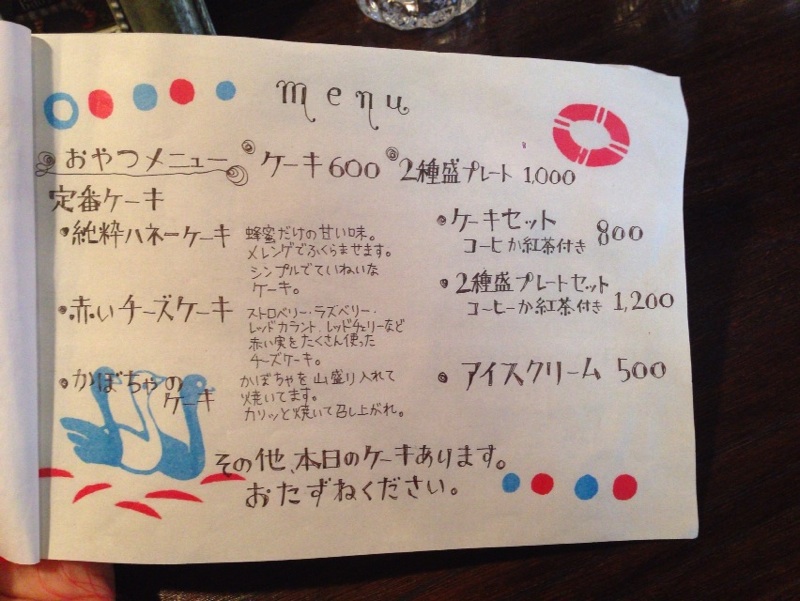 menu
おやつメニュー ケーキ600 2種盛プレート 1,000
定番ケーキ
・純粋ハネーケーキ
蜂蜜だけの甘い味。
メレンゲでふくらませます。
シンプルでていねいな
ケーキ。
・赤いチーズケーキ
ストロベリー・ラズベリー・
レッドカラント、レッドチェリーなど
赤い実をたくさん使った
チーズケーキ。
・かぼちゃの
ケーキ
かぼちゃを山盛り入れて
焼いてます。
カリッと焼いて召し上がれ。
・ケーキセット 800
コーヒか紅茶付き
・2種盛プレートセット
コーヒーか紅茶付き 1,200
・アイスクリーム 500
その他、本日のケーキあります。
おたずねください。